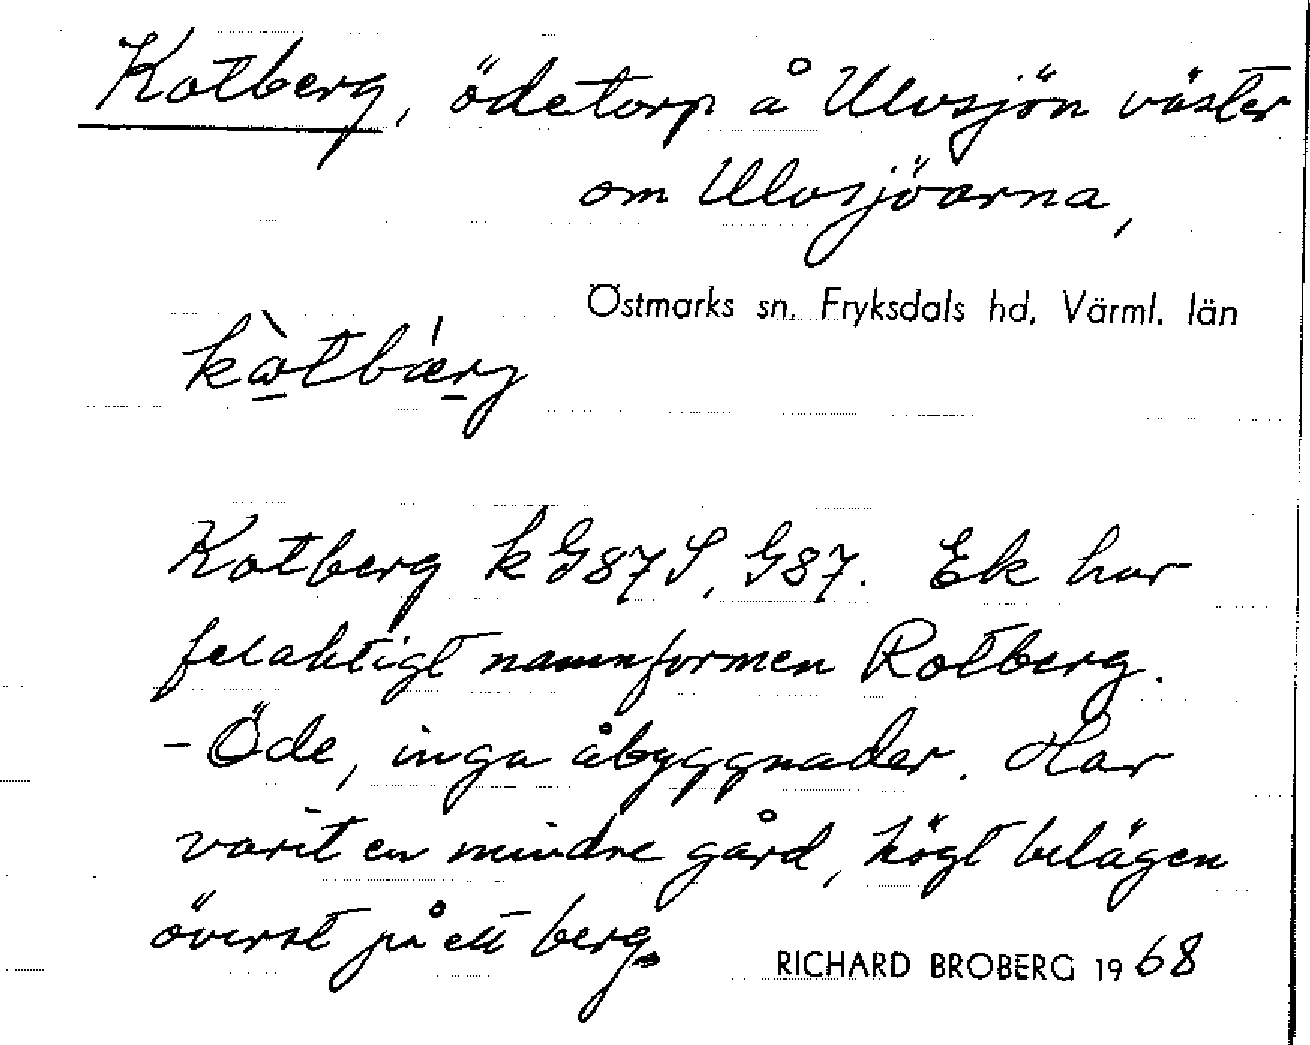 Kotberg, ödetorp å Ulvsjön väster
om Ulvsjöarna,
Östmarks sn. Fryksdals hd, Värml. län
Kotberg k G87S, G87. Ek har
felaktigt namnformen Rotberg.
- Öde, inga åbyggnader. Har
varit en mindre gård, högt belägen
överst på ett berg.
RICHARD BROBERG 1968